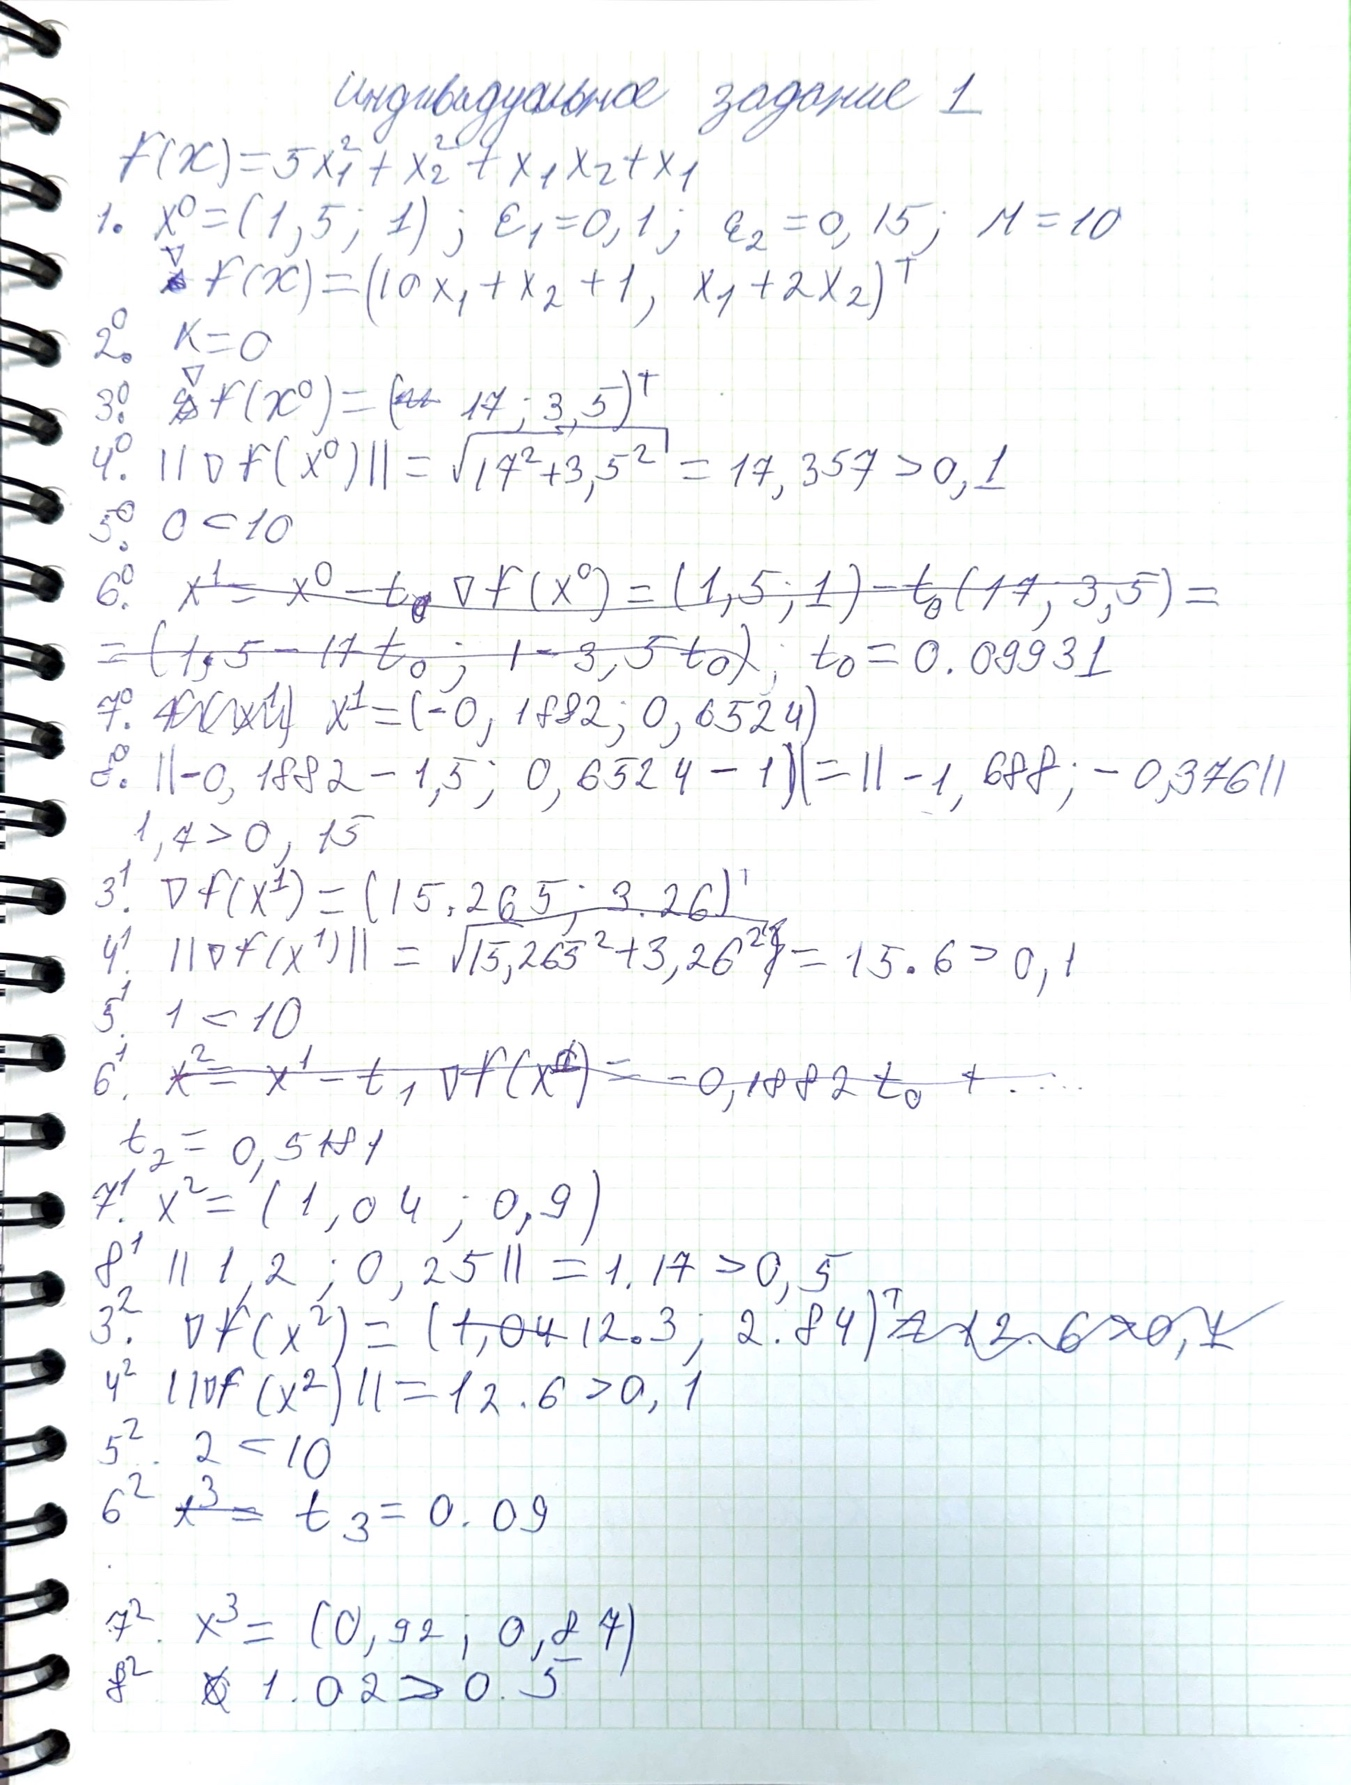 Индивидуальное задание 1
f(x)=5x₁²+x₂²+x₁x₂+x₁
1. x⁰=(1,5; 1); ε₁=0,1; ε₂=0,15; M=10
∇f(x)=(10x₁+x₂+1, x₁+2x₂)ᵀ
2⁰. K=0
3⁰. ∇f(x⁰)=(17; 3,5)ᵀ
4⁰. ||∇f(x⁰)||=√17²+3,5² = 17,357>0,1
5⁰. 0<10
6⁰. x¹=x⁰-t₀∇f(x⁰)=(1,5;1)-t₀(17; 3,5)=
=(1,5-17t₀; 1-3,5t₀); t₀=0.09931
7⁰. x¹=(-0,1882; 0,6524)
8⁰. ||-0,1882-1,5; 0,6524-1||=||-1,688; -0,376||
1,7>0,15
3¹. ∇f(x¹)=(15.265; 3.26)ᵀ
4¹. ||∇f(x¹)||=√15,265²+3,26² =15.6>0,1
5¹. 1<10
6¹. x²=x¹-t₁∇f(x¹)=-0,1882t₀+...
t₂=0,5181
7¹. x²=(1,04; 0,9)
8¹ ||1,2; 0,25||=1.17>0,5
3². ∇f(x²)=(1,04 12.3; 2.84)ᵀ= 12.6>0,1
4² ||∇f(x²)||=12.6>0,1
5². 2<10
6² x³= t₃=0.09
7². x³=(0,92; 0,87)
8² 1.02>0.5